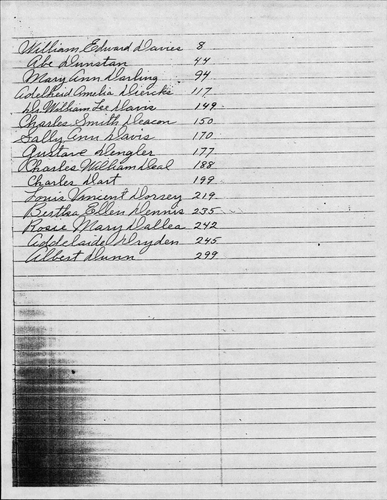 William Edward Davies 8
Abe Dunstan 44
Mary Ann Darling 94
Adelheid Amelia Diercks 117
Dr William Lee Davis 149
Charles Smith Deacon 150
Sally Ann Davis 170
Gustave Dengler 177
Charles William Deal 188
Charles Dart 199
Louis Vincent Dorsey 219
Bertha Ellen Dennis 235
Rosie Mary Dalles 242
Addelaide Dryden 245
Albert Dunn 299